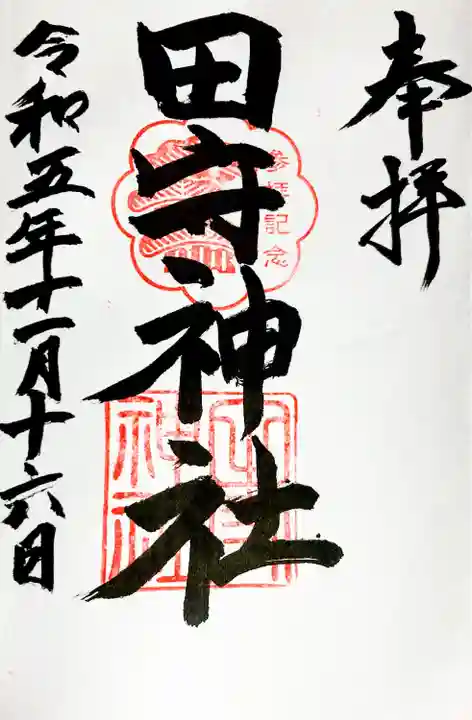 奉拝
参拝記念
田守神社
令和五年十一月十六日